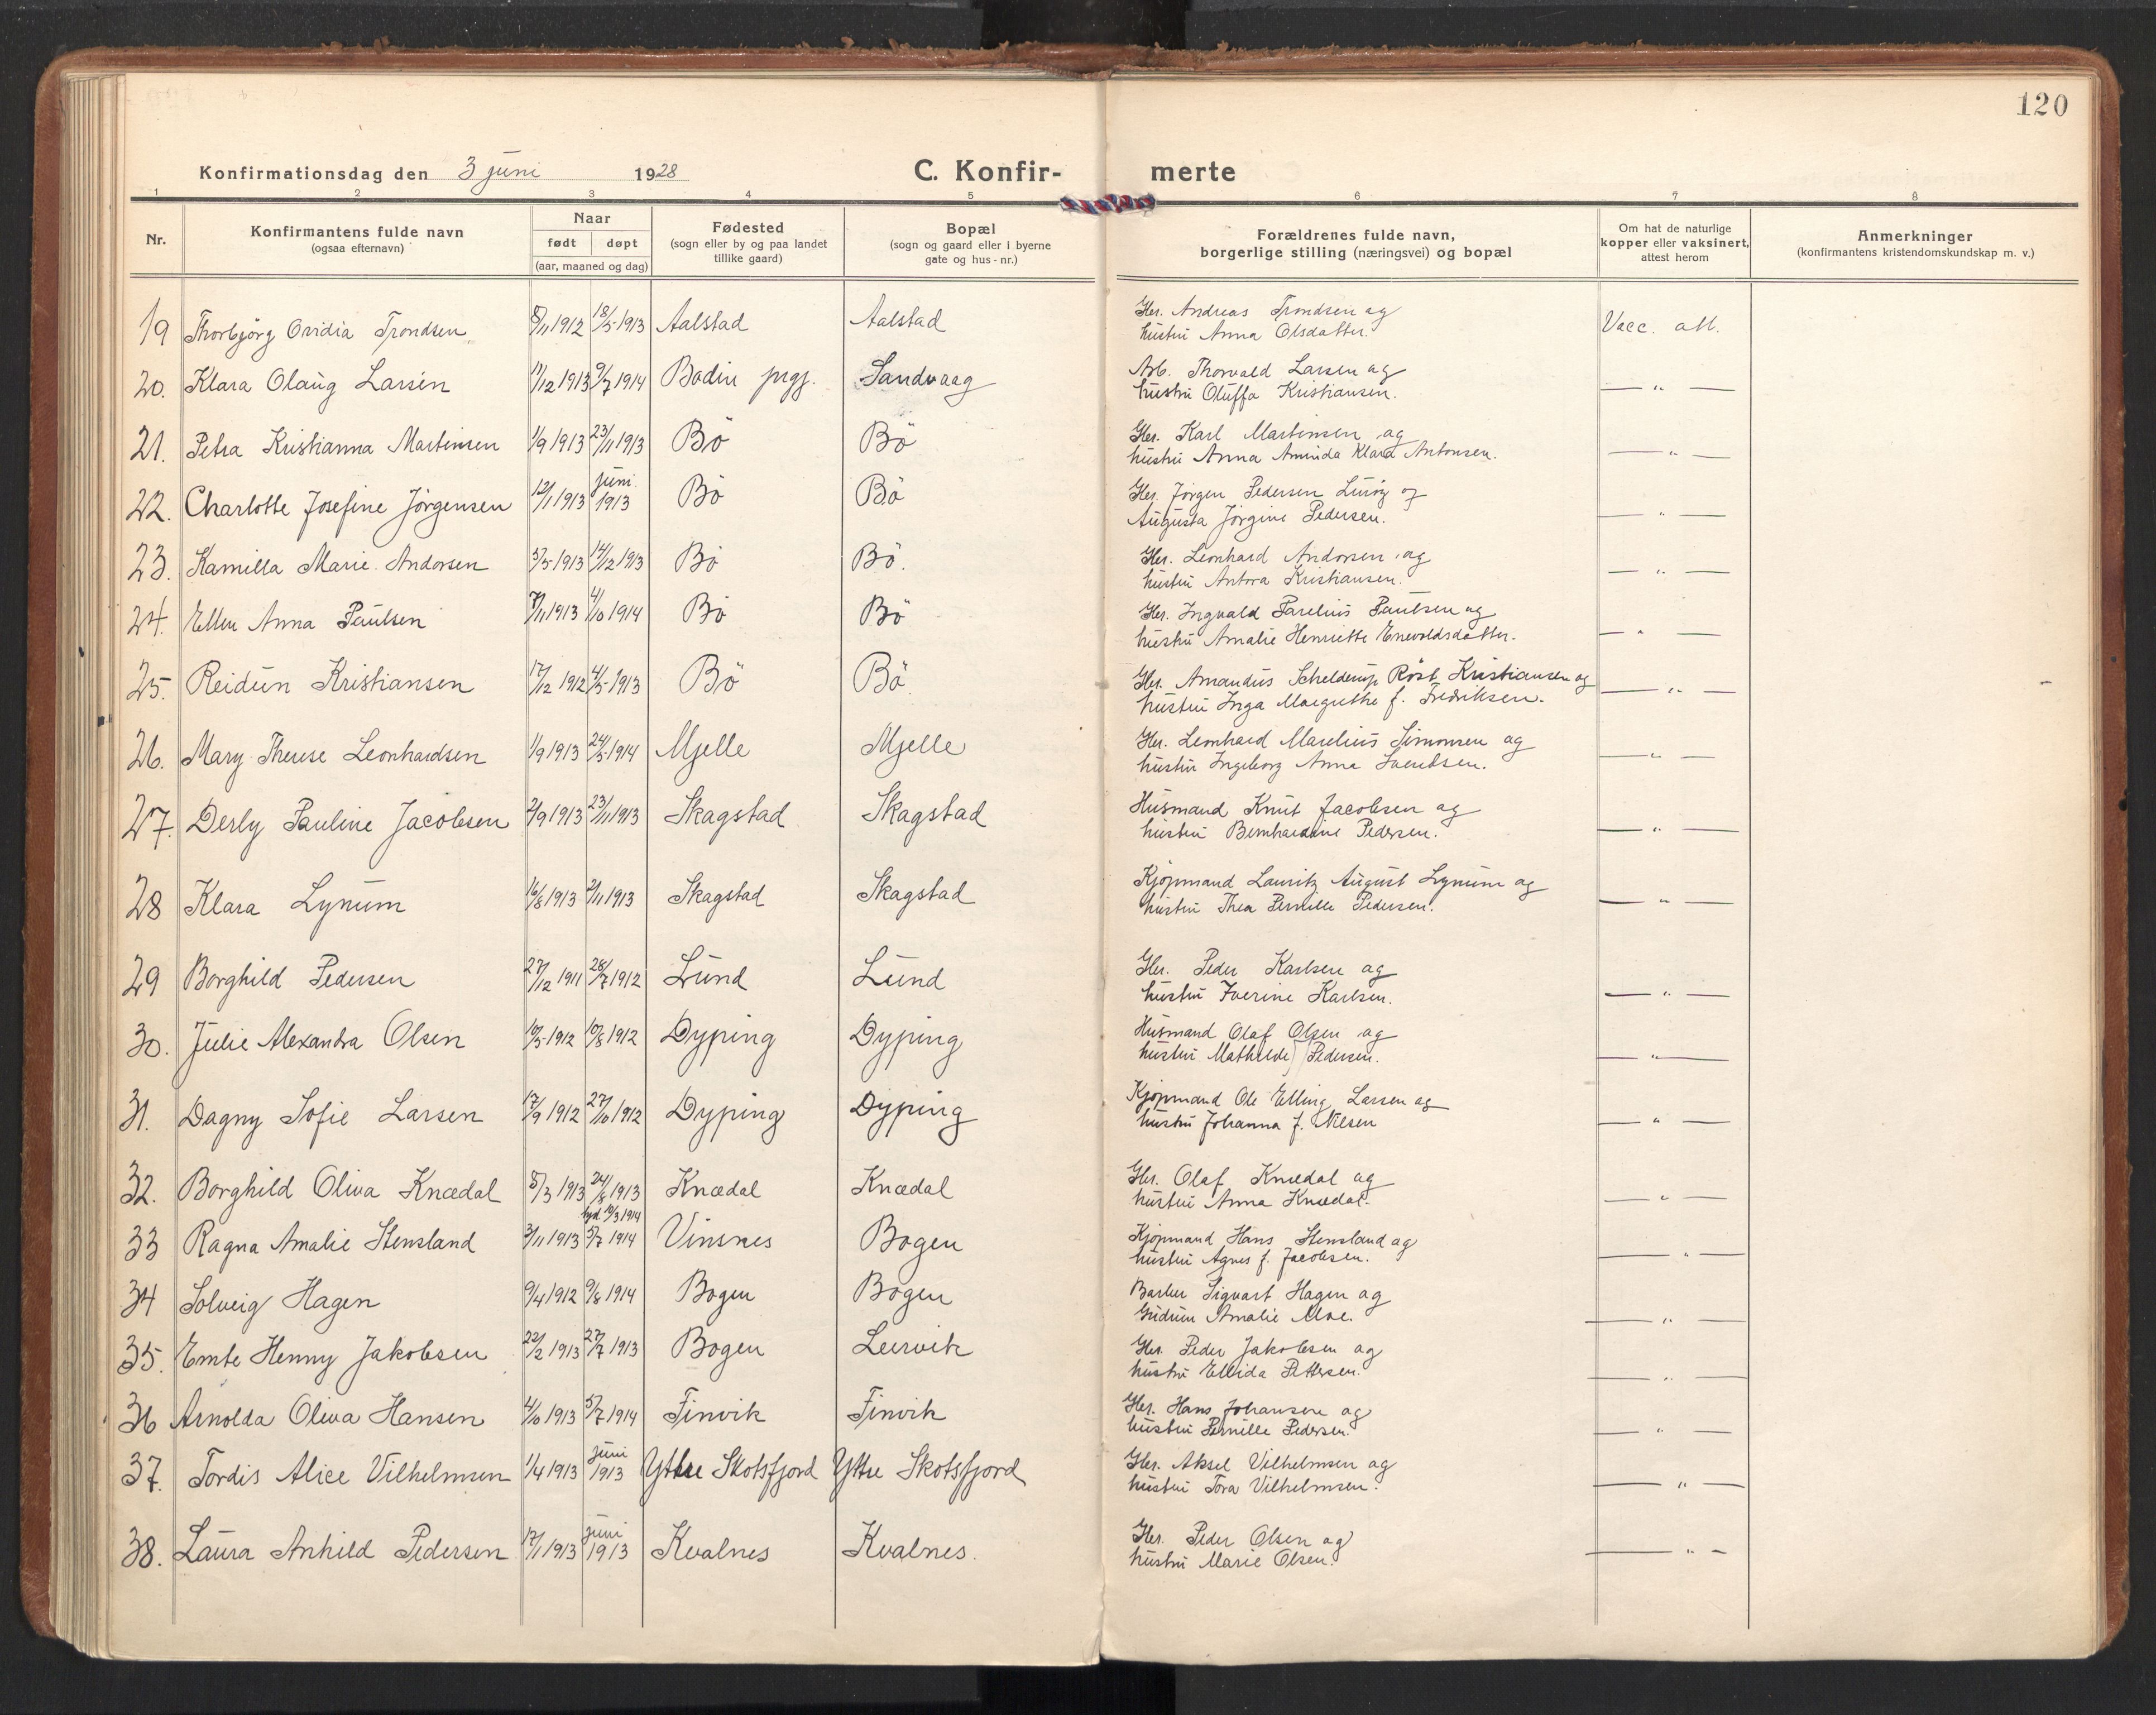 120
Konfirmationsdag den 3 juni 1928
C. Konfir-merte
1 2 3 4 5 6 7 8
Nr.
Konfirmantens fulde navn
(ogsaa efternavn)
Naar
født døpt
(aar, maaned og dag)
Fødested
(sogn eller by og paa landet
tillike gaard)
Bopæl
(sogn og gaard eller i byerne
gate og hus-nr.)
Forældrenes fulde navn,
borgerlige stilling (næringsvei) og bopæl
Om hat de naturlige
kopper eller vaksinert,
attest herom
Anmerkninger
(konfirmantens kristendomskundskap m. v.)
19 Thorbjörg Ovidia Trondsen 8/11 1912 18/5 1913 Aalstad Aalstad Gbr. Andreas Trondsen og
hustru Anna Olsdatter. Vacc. att.
20. Klara Olaug Larsen 17/12 1913 9/7 1914 Bodin prgj. Sandvaag Arb. Thorvald Larsen og
hustru Oluffa Kristiansen. — " —
21. Petra Kristianna Martinsen 1/9 1913 23/11 1913 Bö Bö Gbr. Karl Martinsen og
hustru Anna Aminda Klara Antonsen. — " —
22. Charlotte Josefine Jörgensen 12/1 1913 juni 1913 Bö Bö Gbr. Jörgen Pedersen og
Augusta Jörgine Pedersen. — " —
23. Kamilla Marie Andorsen 5/5 1913 14/12 1913 Bö Bö. Gbr. Leonhard Andorsen og
hustru Antora Kristiansen. — " —
24. Ellen Anna Paulsen 7/11 1913 4/10 1914 Bö Bö Gbr. Ingvald Parelius Paulsen og
hustru Amalie Henriette Enevoldsdatter. — " —
25. Reidun Kristiansen 17/12 1912 4/5 1913 Bö Bö Gbr. Amandus Schelderup Röst Kristiansen og
hustru Inga Margrethe f. Fredriksen. — " —
26. Mary Therese Leonhardsen 1/9 1913 24/5 1914 Mjelle Mjelle Gbr. Leonhard Marelius Simonsen og
hustru Ingeborg Anna Svendsen. — " —
27. Derly Pauline Jacobsen 2/9 1913 23/11 1913 Skagstad Skagstad Husmand Knut Jacobsen og
hustru Bernhardine Pedersen. — " —
28 Klara Lynum 16/8 1913 2/11 1913 Skagstad Skagstad Kjöpmand Lauritz August Lynum og
hustru Thea Pernille Pedersen. — " —
29 Borghild Pedersen 27/12 1911 28/7 1912 Lund Lund Gbr. Peder Karlsen og
hustru Iverine Karlsen. — " —
30. Julie Alexandra Olsen 10/5 1912 10/8 1912 Dyping Dyping Husmand Olaf Olsen og
hustru Mathilde Pedersen. — " —
31. Dagny Sofie Larsen 17/9 1912 27/10 1912 Dyping Dyping Kjöpmand Ole Elling Larsen og
hustru Johanna f. Nilsen — " —
32. Borghild Oliva Knædal 8/3 1913 24/8 1913 Knædal Knædal Gbr. Olaf Knædal og
hustru Anna Knædal. — " —
33 Ragna Amalie Stensland 3/11 1913 hjd. 10/3 1914 5/7 1914 Vinsnes Bogen Kjöpmand Hans Stensland og
hustru Agnes f. Jacobsen. — " —
34 Solveig Hagen 9/4 1912 9/8 1914 Bogen Bogen Barber Sigvart Hagen og
Gudrun Amalie Moe. — " —
35. Emte Henny Jakobsen 22/2 1913 27/7 1913 Bogen Leervik Gbr. Peder Jakobsen og
hustru Ellida Pettersen. — " —
36 Arnolda Oliva Hansen 4/10 1913 5/7 1914 Finvik Finvik Gbr. Hans Johansen og
hustru Pernille Pedersen. — " —
37. Tordis Alice Vilhelmsen 1/4 1913 juni 1913 Yttre Skotsfjord Yttre Skotsfjord Gbr. Aksel Vilhelmsen og
hustru Tora Vilhelmsen. — " —
38. Laura Anhild Pedersen 17/1 1913 juni 1913 Kvalnes Kvalnes. Gbr. Peder Olsen og
hustru Marie Olsen. — " —